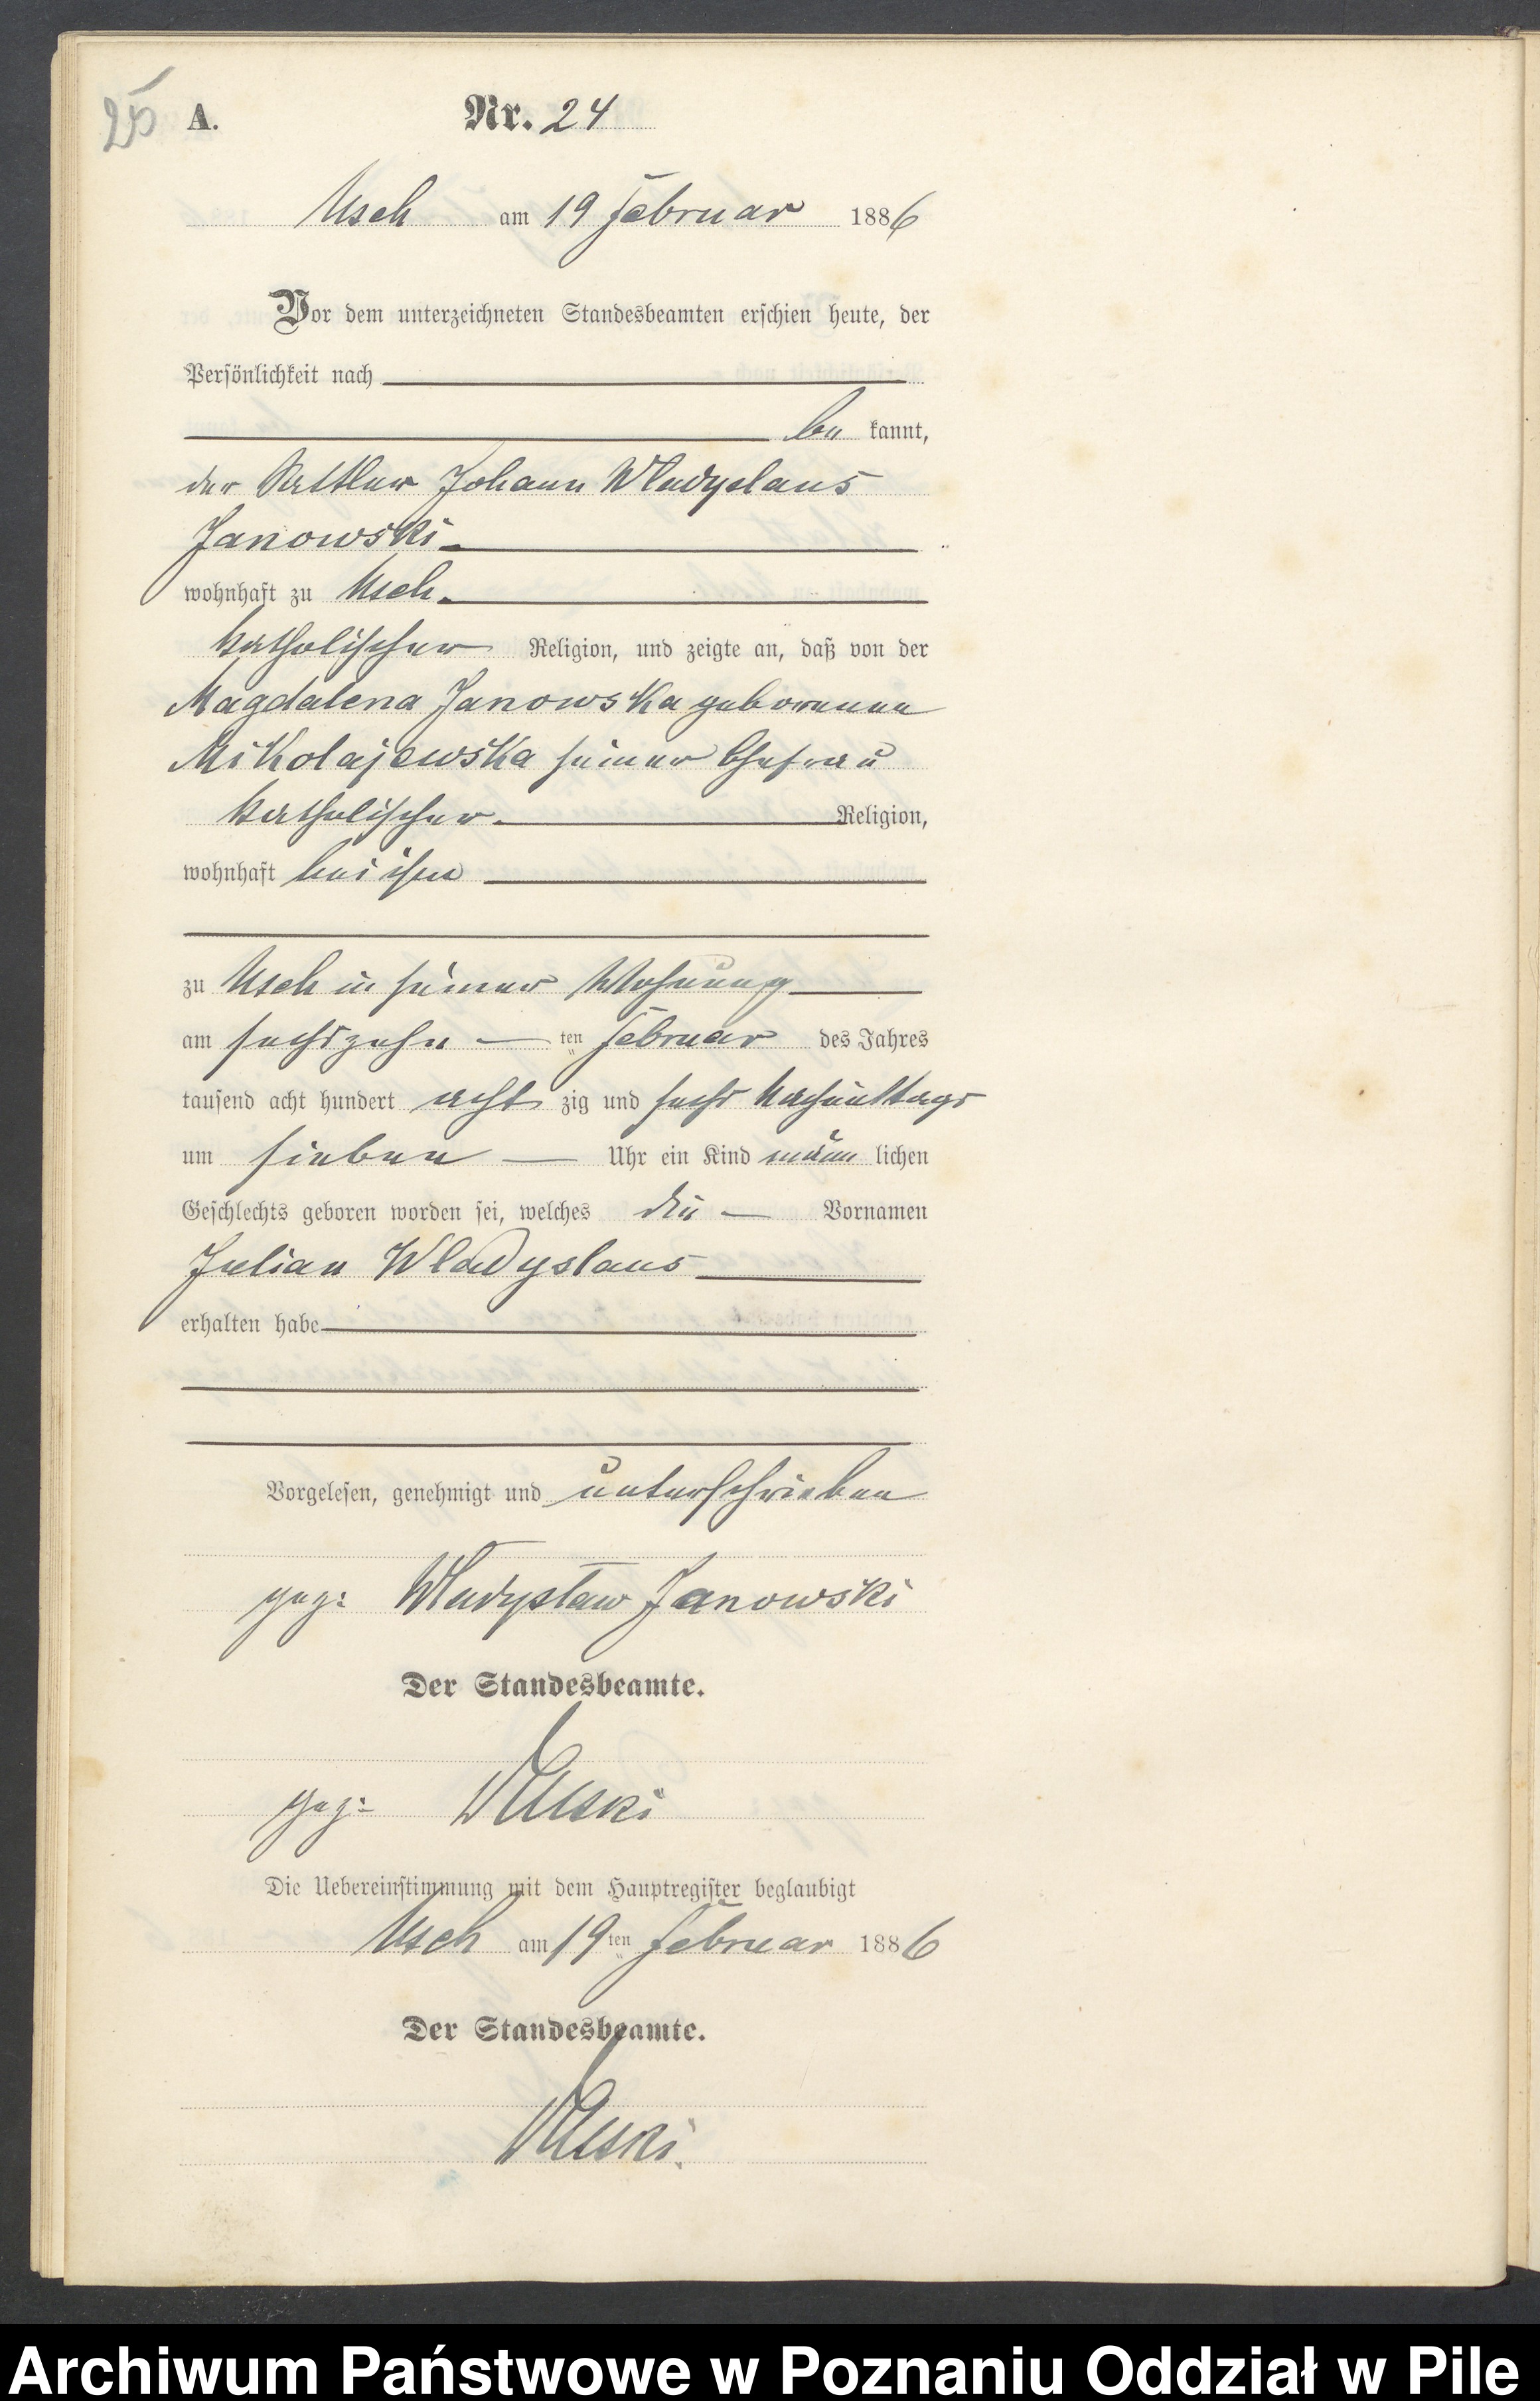 25 A. Nr. 24
Usch am 19 Februar 1886
Vor dem unterzeichneten Standesbeamten erschien heute, der
Persönlichkeit nach
be kannt,
der Sattler Johann Wladyslaus
Janowski
wohnhaft zu Usch
katholischer Religion, und zeigte an, daß von der
Magdalena Janowska geborenen
Mikolajewska seiner Ehefrau
katholischer Religion,
wohnhaft bei ihm
zu Usch in seiner Wohnung
am sechszehn ten Februar des Jahres
tausend acht hundert acht zig und sechs Nachmittags
um sieben Uhr ein Kind männ lichen
Geschlechts geboren worden sei, welches die Vornamen
Julian Wladyslaus
erhalten habe
Vorgelesen, genehmigt und unterschrieben
gez: Władysław Janowski
Der Standesbeamte.
gez:
Die Uebereinstimmung mit dem Hauptregister beglaubigt
Usch am 19 ten Februar 1886
Der Standesbeamte.
Archiwum Państwowe w Poznaniu Oddział w Pile